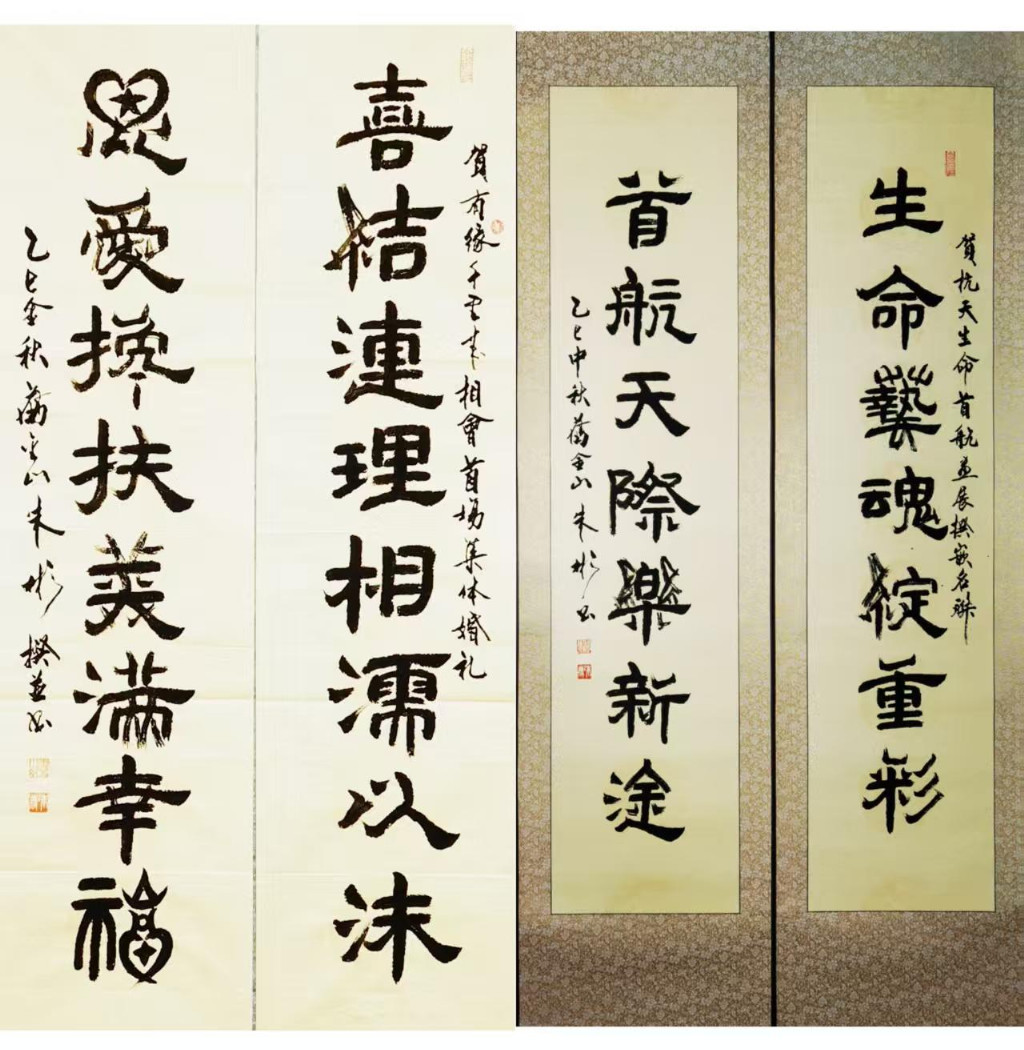 賀杭天生命首航並展撰嵌名聯
生命藝魂綻重彩
首航天際樂新途
乙巳中秋金山朱彬書
賀有緣千里来相會首場集体婚礼
喜結連理相濡以沫
恩愛搀扶美满幸福
乙巳金秋金山朱彬撰並書